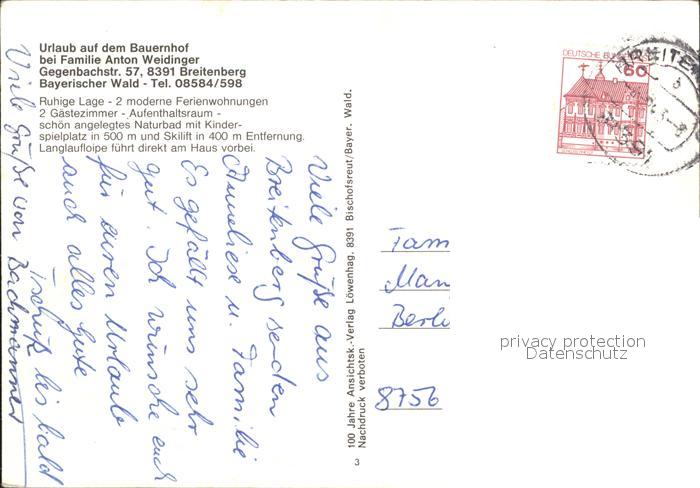 Urlaub auf dem Bauernhof
bei Familie Anton Weidinger
Gegenbachstr. 57, 8391 Breitenberg
Bayerischer Wald - Tel. 08584/598
Ruhige Lage - 2 moderne Ferienwohnungen
2 Gästezimmer - Aufenthaltsraum -
schön angelegtes Naturbad mit Kinder-
spielplatz in 500 m und Skilift in 400 m Entfernung.
Langlaufloipe führt direkt am Haus vorbei.
Viele Grüße aus
Breitenberg senden
Anneliese u. Familie
Es gefällt uns sehr
gut. Ich wünsche euch
für euren Urlaub
auch alles Gute
Tschüß bis bald
Viele Grüße von Bachmannes
100 Jahre Ansichtsk.-Verlag Löwenhag, 8391 Bischofsreut/Bayer. Wald.
Nachdruck verboten
3
DEUTSCHE BUNDES
60
Fam
Man
Berli
8756
privacy protection
Datenschutz